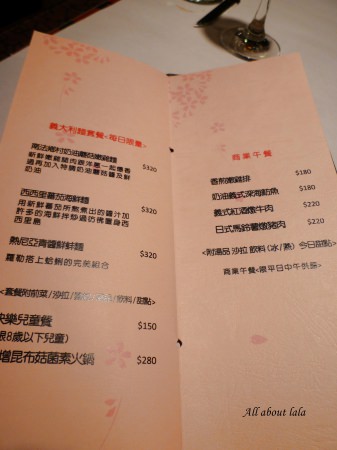 義大利麵套餐<每日限量>
南法鄉村奶油蘑菇嫩雞麵
$320
西西里蕃茄海鮮麵 $320
用新鮮蕃茄所熬煮出的醬汁加
許多的海鮮拌炒過彷彿置身西
西里島
熱尼亞青醬鮮鮮麵 $320
羅勒搭上蛤蜊的完美組合
<套餐附前菜/沙拉/
/飲料/甜點>
快樂兒童餐 $150
限8歲以下兒童)
增昆布菇菌素火鍋 $280
商業午餐
香煎嫩雞排 $180
奶油義式深海魴魚 $180
義式紅酒燉牛肉 $220
日式馬鈴薯燉豬肉 $220
<附湯品 沙拉 飲料 (冰/熱) 今日甜點>
商業午餐<限平日中午供應>
All about lala